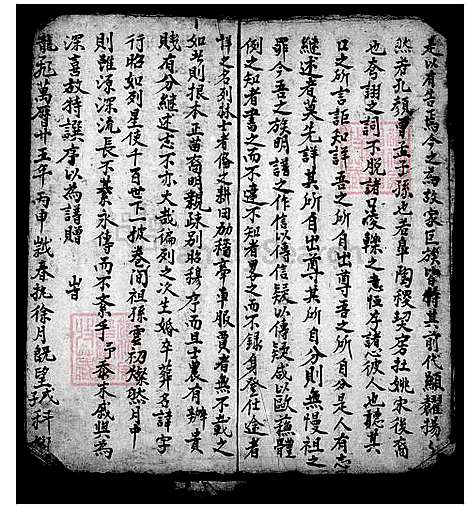 是以有告焉今之為故家巨族皆特其前代顯耀揚々
然若孔顏曾孟子孫也若皐陶稷契房杜姚宋後裔
也夸詡之詞不脫諸口凌轢之意恒存諸心彼人也聽其
口之所言詎知詳吾之所自出尊吾之所自分是人有志
繼述者莫先詳其所自出尊其所自分則無慢祖之
罪今吾之族明譜之作信以傳信疑以傳疑咸以歐蘇體
例之知者書之而不遺不知者畧之而不錄身登仕途者
詳之名列林士者俻之耕田劝穡牽車服賈者無不載之
如此則根本正苗裔明親疎别昭穆序而且士農有辨貴
賤有分繼述之志不亦大哉編列之次生婚卒葬名諱字
行昭如列星使千百世下披卷间祖孫雲礽燦然月申
則雖源深流長不紊永傳而不紊乎予忝末戚與為
深喜故特譔序以為譜贈 時
龍飛萬曆廿五年丙申歲春孔徐月既望戌子科